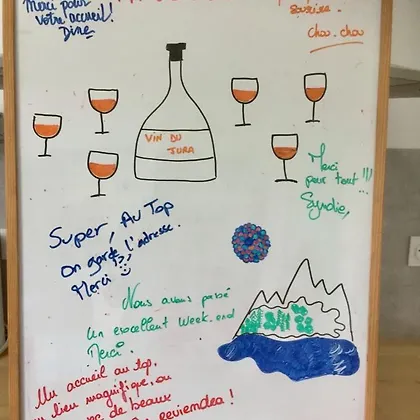 Merci pour
votre accueil!
Dine
sourire.
chou-chou
VIN DU
JURA
Merci
pour tout!!!
Syndie,
Super, Au Top
on garde l'adresse.
Merci
Nous avons passé
un excellent week-end
Merci.
Un accueil au top,
lieu magnifique, on
de beaux
reviendra!